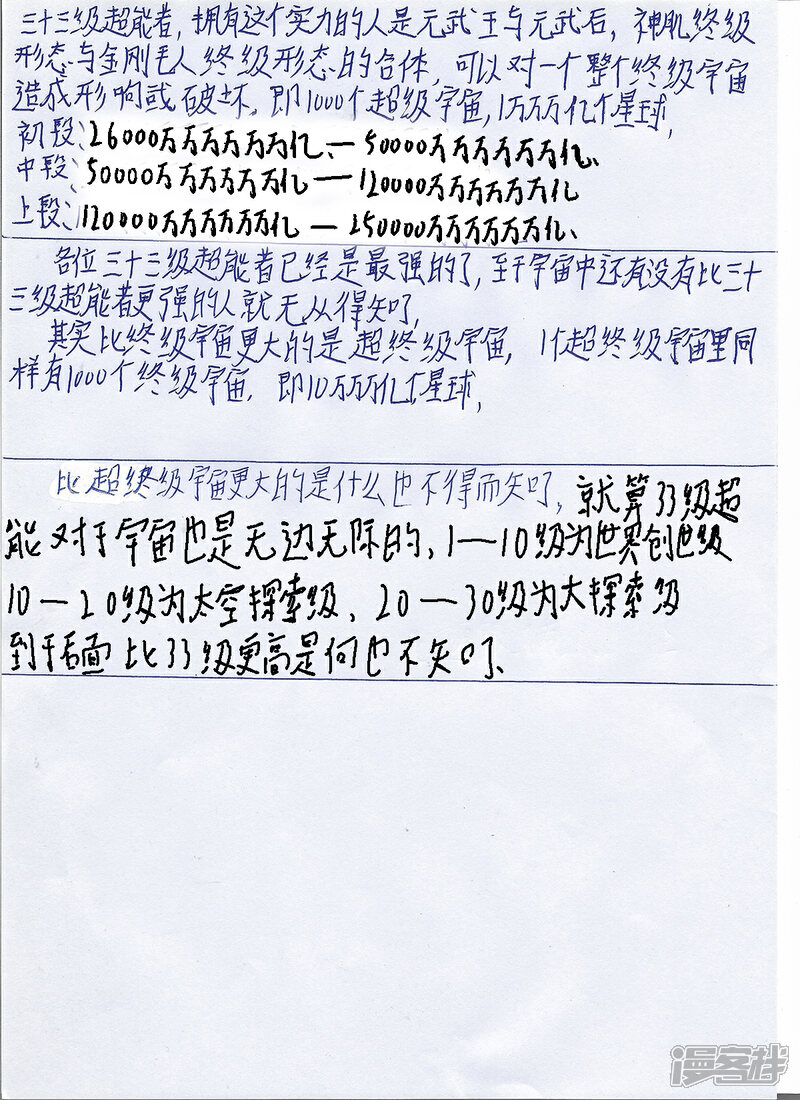 三十三级超能者，拥有这个实力的人是元武王与元武后，神肌终级
形态与金刚毛人终级形态的合体，可以对一个整个终级宇宙
造成形响或破坏，即1000个超级宇宙，1万万万亿个星球，
初段、26000万万万万万万亿、—50000万万万万万万亿、
中段、50000万万万万万万亿—120000万万万万万万亿
上段、120000万万万万万万亿—250000万万万万万万亿、
各位三十三级超能者已经是最强的了，至于宇宙中还有没有比三十
三级超能者更强的人就无从得知了，
其实比终级宇宙更大的是超终级宇宙，1个超终级宇宙里同
样有1000个终级宇宙，即10万万万亿个星球，
比超终级宇宙更大的是什么也不得而知了，就算33级超
能对于宇宙也是无边无际的，1—10级为世界创世级
10—20级为太空探索级、20—30级为大探索级
到于后面比33级更高是何也不知了、
漫客栈